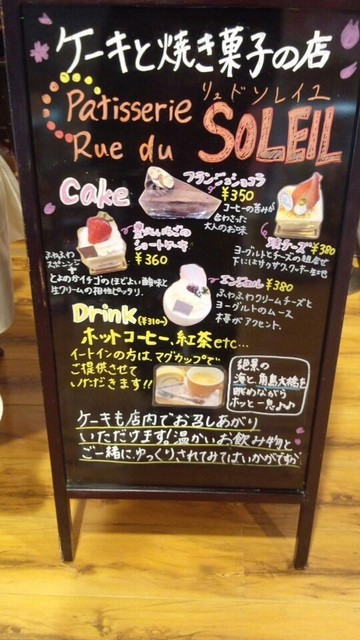 ケーキと焼き菓子の店
リュドソレイユ
Patisserie
Rue du SOLEIL
Cake
フランショコラ
¥350
コーヒーの苦みが
合わさった
大人のお味
ショートケーキ
¥360
ふわふわ
スポンジ
+
とよのかイチゴのほどよい酸味と
生クリームの相性ピッタリ。
チーズ ¥380
ヨーグルトとチーズの組合せ
下にはサクサククッキー生地
エンジェル ¥380
ふわふわクリームチーズと
ヨーグルトのムース
がアクセント。
Drink (¥310~)
ホットコーヒー、紅茶etc…
イートインの方は、マグカップで…
ご提供させて
いただきます!!
絶景の
海と、角島大橋を
眺めながら
ホッと一息♪♪
ケーキも店内でお召しあがり
いただけます!温かいお飲み物と
ご一緒にゆっくりされてみてはいかがですか